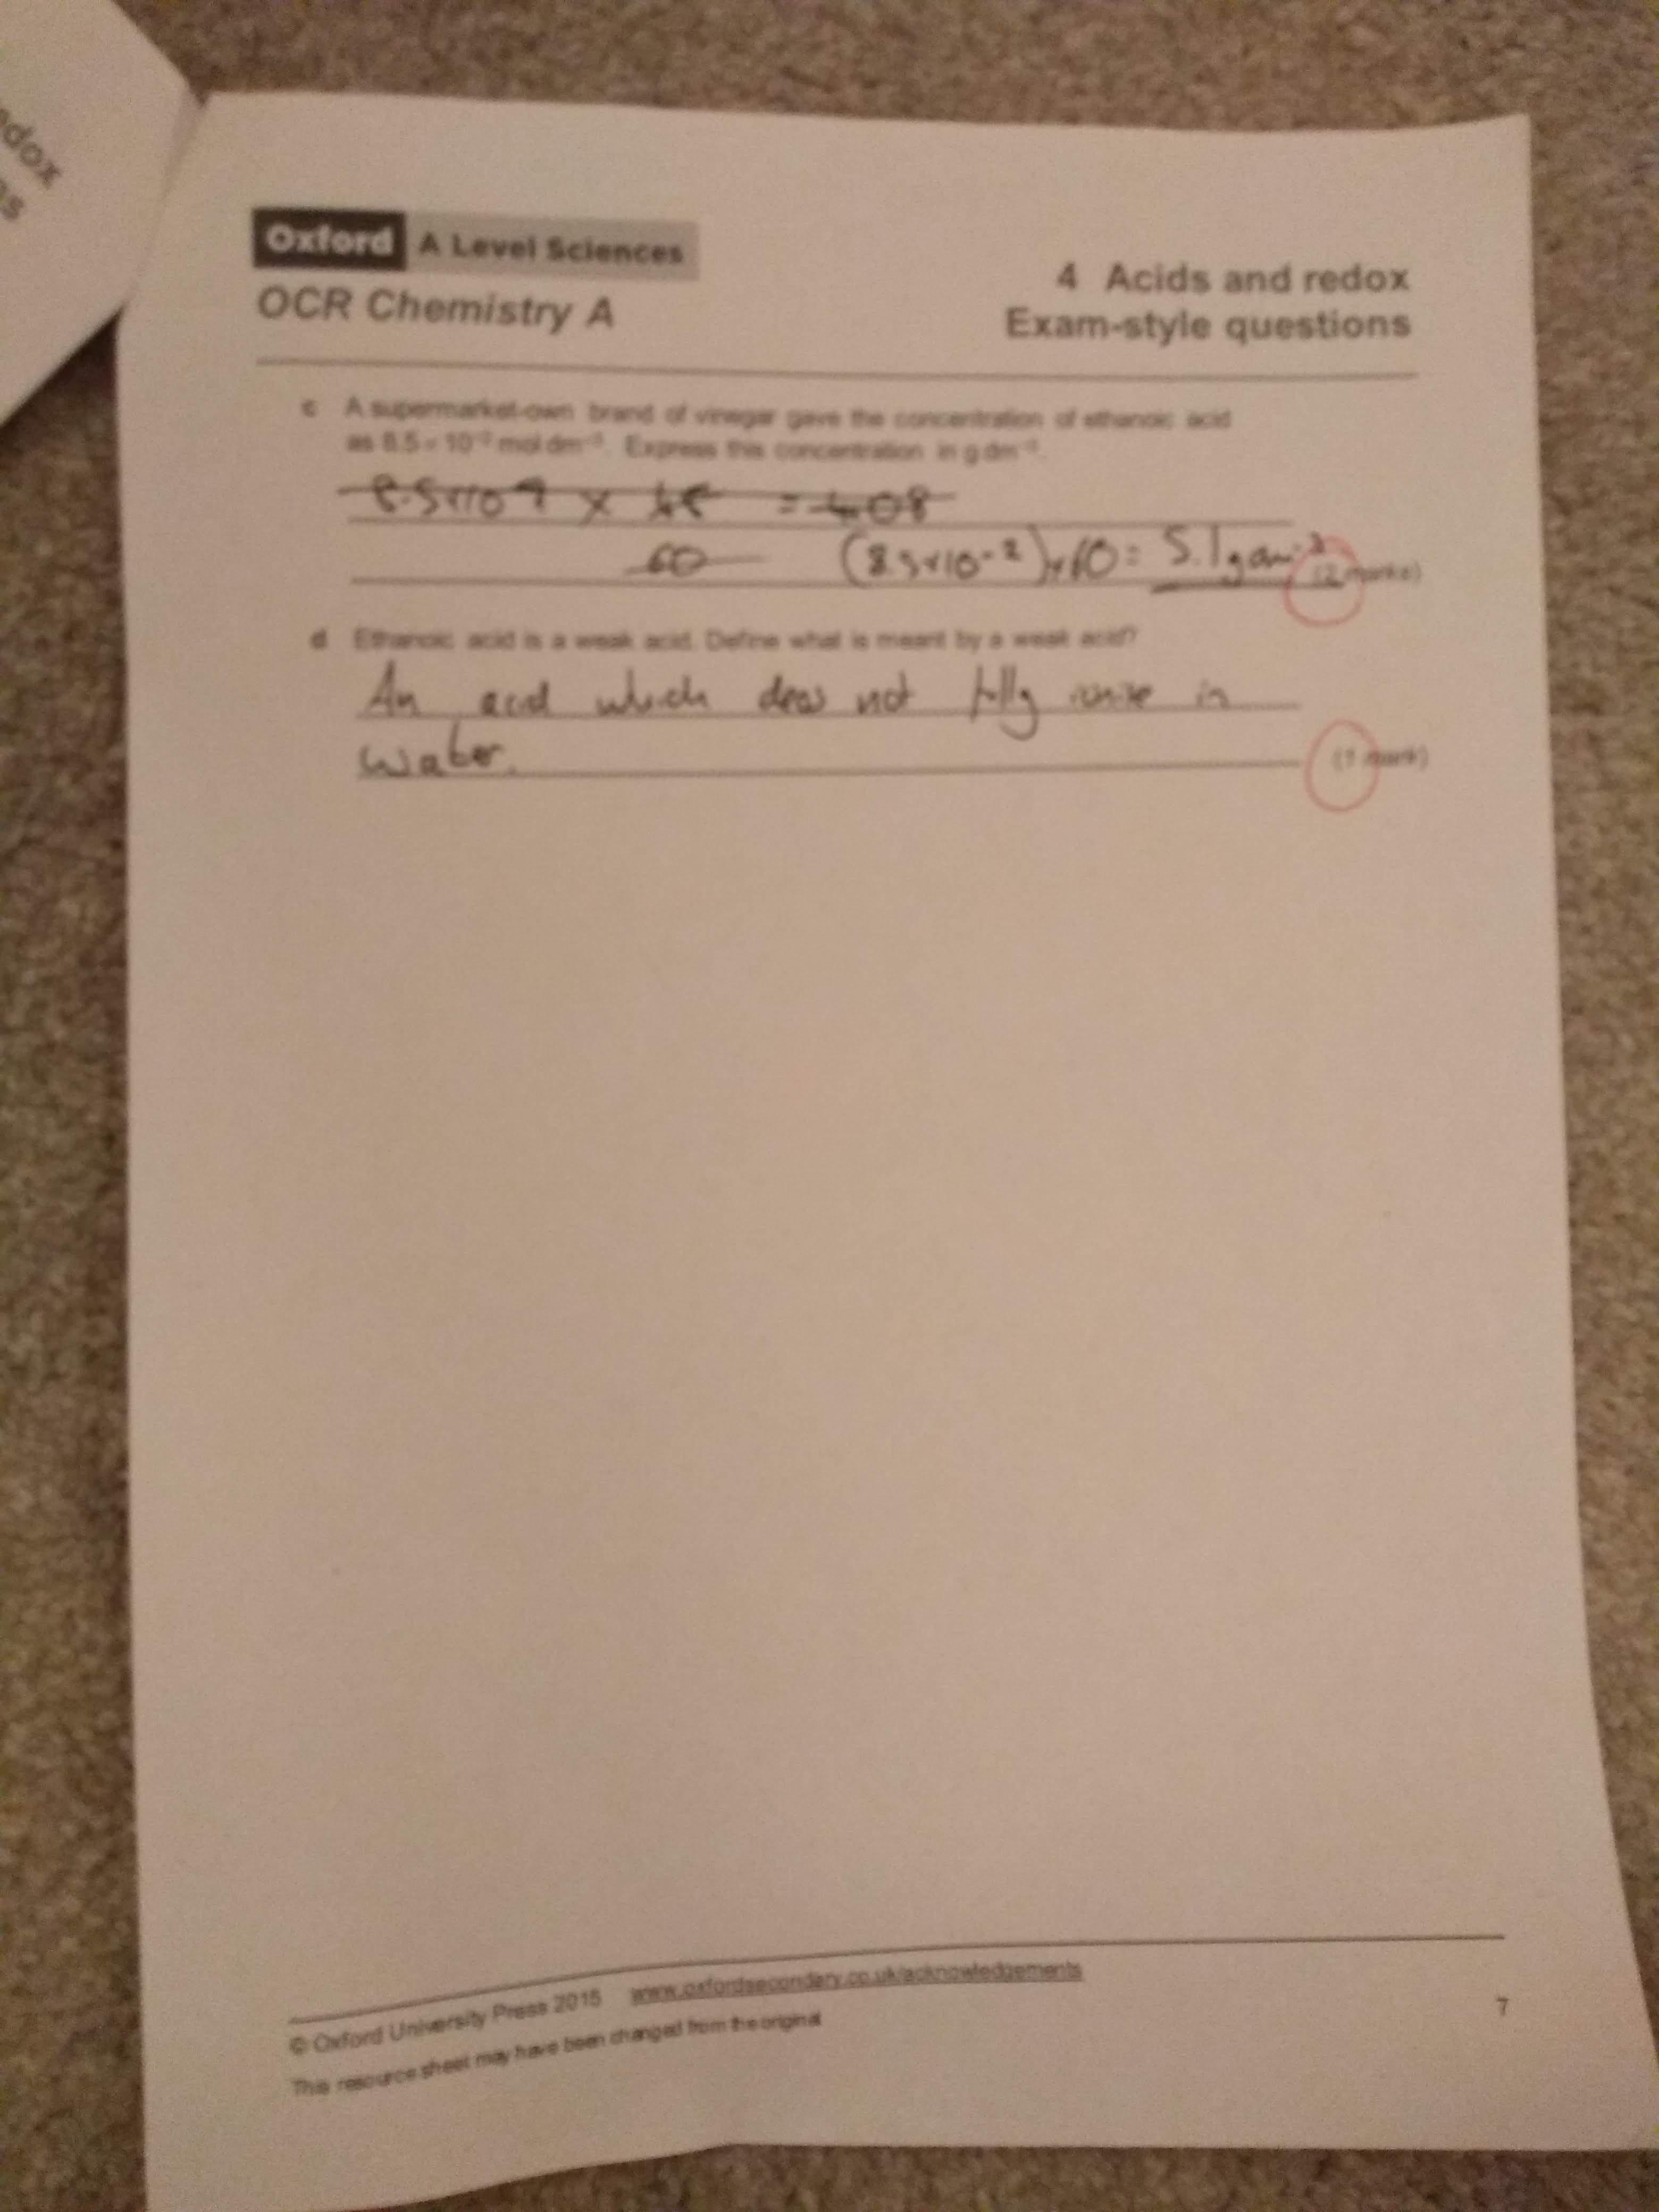 dox
s
Oxford A Level Sciences
OCR Chemistry A
4 Acids and redox
Exam-style questions
c A supermarket-own brand of vinegar gave the concentration of ethanoic acid
as 8.5 × 10⁻² mol dm⁻³. Express this concentration in g dm⁻³.
= 408
60 (8.5×10⁻²)×60 = 5.1gdm⁻³
(2 marks)
d Ethanoic acid is a weak acid. Define what is meant by a weak acid?
An acid which does not fully ionise in
water.
(1 mark)
© Oxford University Press 2015 www.oxfordsecondary.co.uk/acknowledgements
This resource sheet may have been changed from the original
7